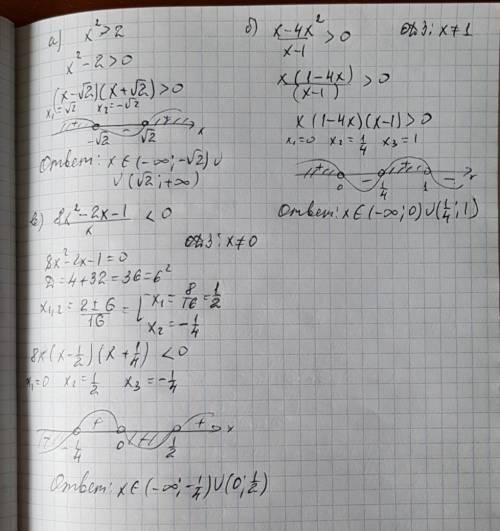 а) x² > 2
x² - 2 > 0
(x-√2)(x+√2) > 0
x₁ = √2 x₂ = -√2
+ - +
-√2 √2 x
Ответ: x ∈ (-∞; -√2) ∪
∪ (√2; +∞)
б) x-4x²/x-1 > 0 ОДЗ: x ≠ 1
x(1-4x)/(x-1) > 0
x(1-4x)(x-1) > 0
x₁ = 0 x₂ = 1/4 x₃ = 1
+ - + -
0 1/4 1 x
Ответ: x ∈ (-∞; 0) ∪ (1/4; 1)
в) 8x²-2x-1/x < 0
ОДЗ: x ≠ 0
8x²-2x-1 = 0
D = 4+32 = 36 = 6²
x₁,₂ = 2±6/16 = [x₁ = 8/16 = 1/2
x₂ = -1/4
8x(x-1/2)(x+1/4) < 0
x₁ = 0 x₂ = 1/2 x₃ = -1/4
- + - +
-1/4 0 1/2 x
Ответ: x ∈ (-∞; -1/4) ∪ (0; 1/2)